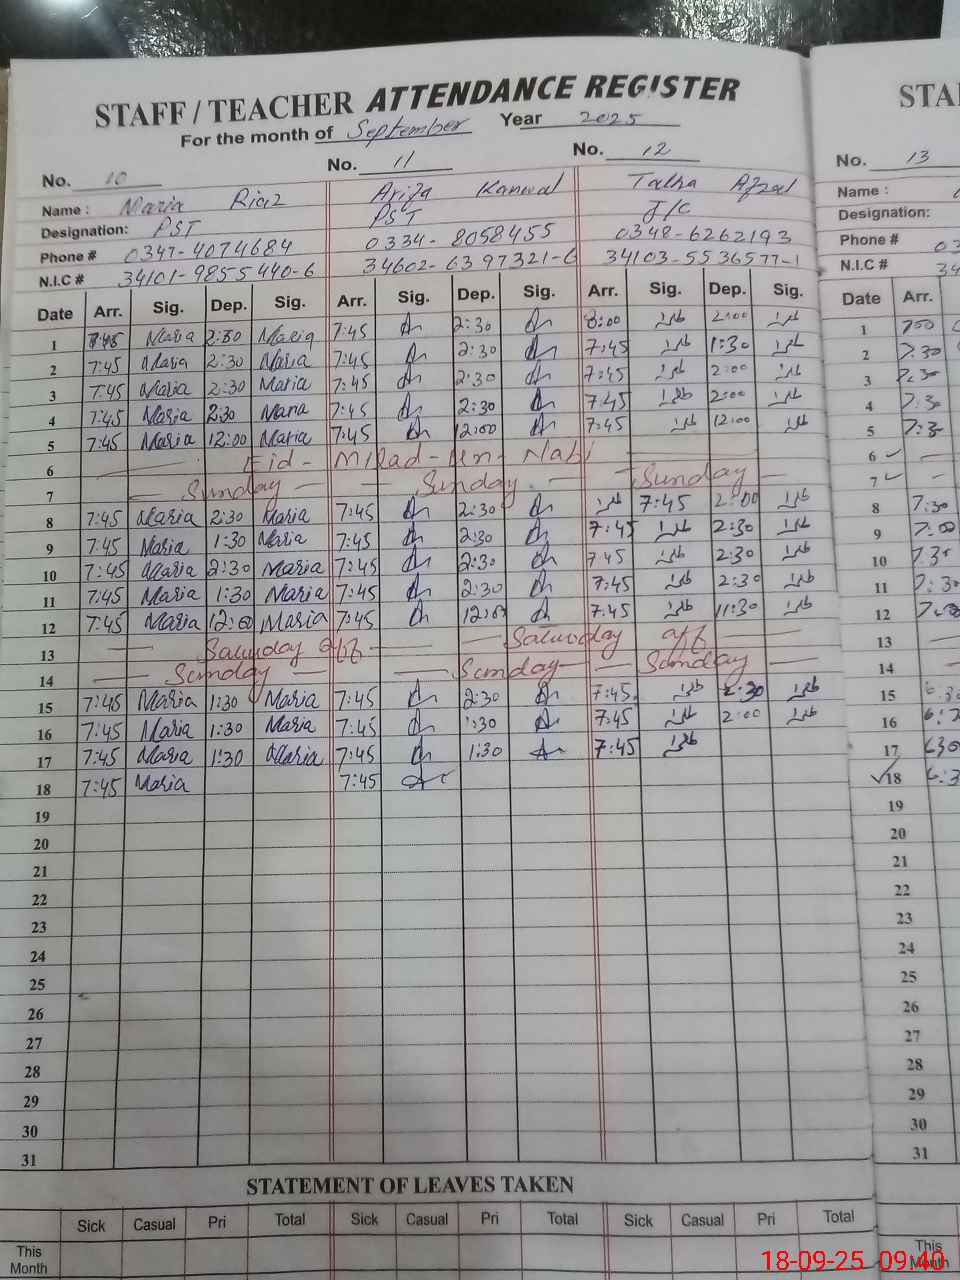 STAFF / TEACHER ATTENDANCE REGISTER STA
For the month of September Year 2025
No. 10 No. 11 No. 12 No. 13
Name : Maria Riaz Arifa Kanwal Talha Afzal Name :
Designation: PST PST J/C Designation:
Phone # 0347-4074684 0334-8058455 0348-6262193 Phone # 03
N.I.C # 34101-9855440-6 34602-6397321-6 34103-5536577-1 N.I.C # 34
Date Arr. Sig. Dep. Sig. Arr. Sig. Dep. Sig. Arr. Sig. Dep. Sig. Date Arr.
1 7:45 Maria 2:30 Maria 7:45 2:30 8:00 2:00 1
2 7:45 Maria 2:30 Maria 7:45 2:30 7:45 1:30 2 7:30
3 7:45 Maria 2:30 Maria 7:45 2:30 7:45 2:00 3 7:30
4 7:45 Maria 2:30 Maria 7:45 2:30 7:45 2:00 4 7:3
5 7:45 Maria 12:00 Maria 7:45 12:00 7:45 12:00 5 7:3
6 Eid - Milad - un - Nabi 6
7 Sunday Sunday Sunday 7
8 7:45 Maria 2:30 Maria 7:45 2:30 7:45 2:00 8 7:30
9 7:45 Maria 1:30 Maria 7:45 2:30 7:45 2:30 9 7:00
10 7:45 Maria 2:30 Maria 7:45 2:30 7 45 2:30 10 7:3
11 7:45 Maria 1:30 Maria 7:45 2:30 7:45 2:30 11 7:30
12 7:45 Maria 12:00 Maria 7:45 12:0 7:45 11:30 12
13 Saturday off Saturday off 13
14 Sunday Sunday Sunday 14
15 7:45 Maria 1:30 Maria 7:45 2:30 7:45 2:30 15 6:3
16 7:45 Maria 1:30 Maria 7:45 1:30 7:45 2:00 16
17 7:45 Maria 1:30 Maria 7:45 1:30 7:45 17 630
18 7:45 Maria 7:45 18 6:3
19 19
20 20
21 21
22 22
23 23
24 24
25 25
26 26
27 27
28 28
29 29
30 30
31 31
STATEMENT OF LEAVES TAKEN
Sick Casual Pri Total Sick Casual Pri Total Sick Casual Pri Total
This Month This Month
18-09-25 09:40